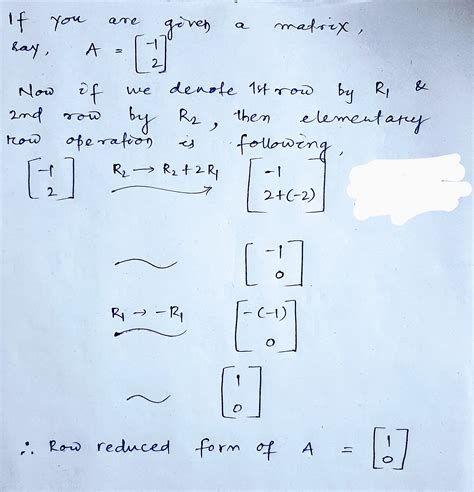 If you are given a matrix,
say, A = [-1 2]
Now if we denote 1st row by R1 &
2nd row by R2, then elementary
row operation is following,
[-1 2] R2 → R2+2R1 [-1 2+(-2)]
~ [-1 0]
R1 → -R1 [-(-1) 0]
~ [1 0]
∴ Row reduced form of A = [1 0]